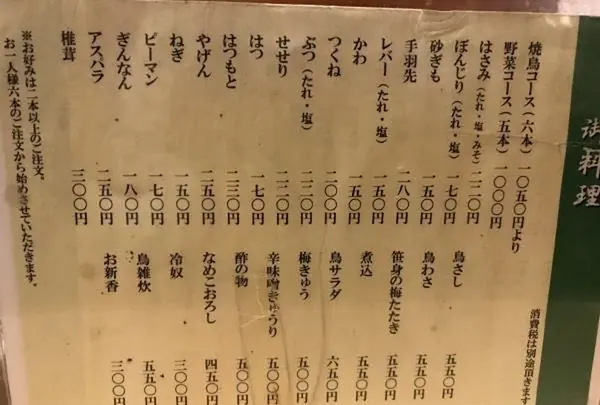 御料理
消費税は別途頂きます
焼鳥コース(六本) 一〇五〇円より
野菜コース(五本) 一〇〇〇円
はさみ(たれ・塩・みそ) 二二〇円
ぼんじり(たれ・塩) 一七〇円
砂ぎも 一五〇円
手羽先 二八〇円
レバー(たれ・塩) 一五〇円
かわ 一五〇円
つくね 二〇〇円
ぶつ(たれ・塩) 二二〇円
せせり 二二〇円
はつ 一七〇円
はつもと 二三〇円
やげん 二五〇円
ねぎ 一五〇円
ピーマン 一七〇円
ぎんなん 一八〇円
アスパラ 二五〇円
椎茸 三〇〇円
鳥さし 五五〇円
鳥わさ 五五〇円
笹身の梅たたき 五五〇円
煮込 五五〇円
鳥サラダ 六五〇円
梅きゅう 五〇〇円
辛味噌きゅうり 五〇〇円
酢の物 五〇〇円
なめこおろし 四五〇円
冷奴 三〇〇円
鳥雑炊 五五〇円
お新香 三〇〇円
※お好みは二本以上のご注文。
お一人様六本のご注文から始めさせていただきます。